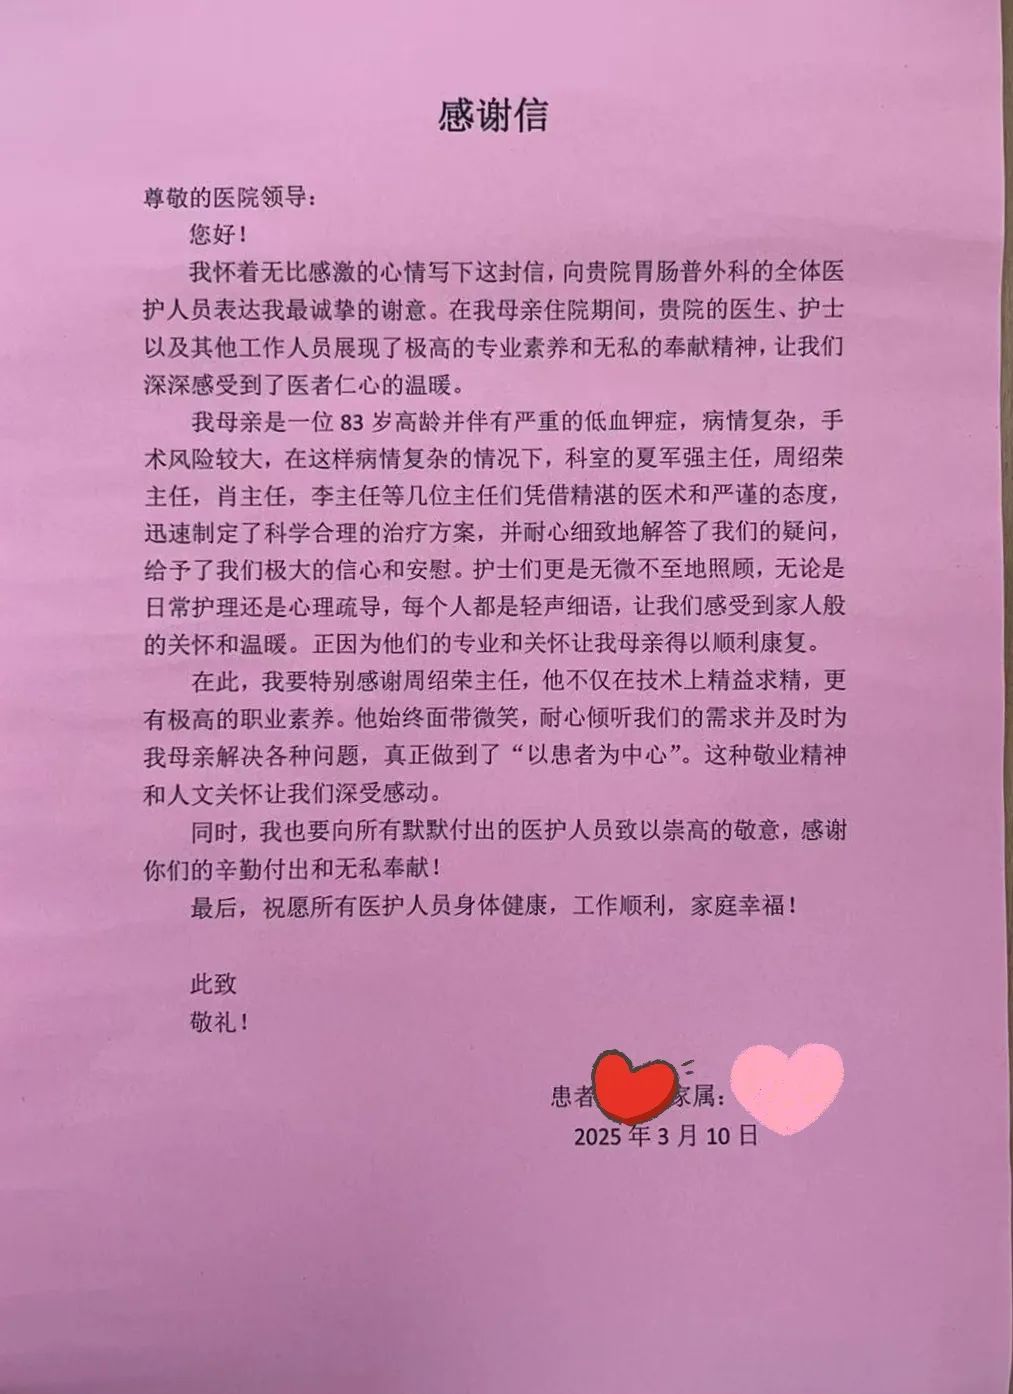 感谢信
尊敬的医院领导：
您好！
我怀着无比感激的心情写下这封信，向贵院胃肠普外科的全体医
护人员表达我最诚挚的谢意。在我母亲住院期间，贵院的医生、护士
以及其他工作人员展现了极高的专业素养和无私的奉献精神，让我们
深深感受到了医者仁心的温暖。
我母亲是一位 83 岁高龄并伴有严重的低血钾症，病情复杂，手
术风险较大，在这样病情复杂的情况下，科室的夏军强主任，周绍荣
主任，肖主任，李主任等几位主任们凭借精湛的医术和严谨的态度，
迅速制定了科学合理的治疗方案，并耐心细致地解答了我们的疑问，
给予了我们极大的信心和安慰。护士们更是无微不至地照顾，无论是
日常护理还是心理疏导，每个人都是轻声细语，让我们感受到家人般
的关怀和温暖。正因为他们的专业和关怀让我母亲得以顺利康复。
在此，我要特别感谢周绍荣主任，他不仅在技术上精益求精，更
有极高的职业素养。他始终面带微笑，耐心倾听我们的需求并及时为
我母亲解决各种问题，真正做到了“以患者为中心”。这种敬业精神
和人文关怀让我们深受感动。
同时，我也要向所有默默付出的医护人员致以崇高的敬意，感谢
你们的辛勤付出和无私奉献！
最后，祝愿所有医护人员身体健康，工作顺利，家庭幸福！
此致
敬礼！
患者 家属：
2025 年 3 月 10 日